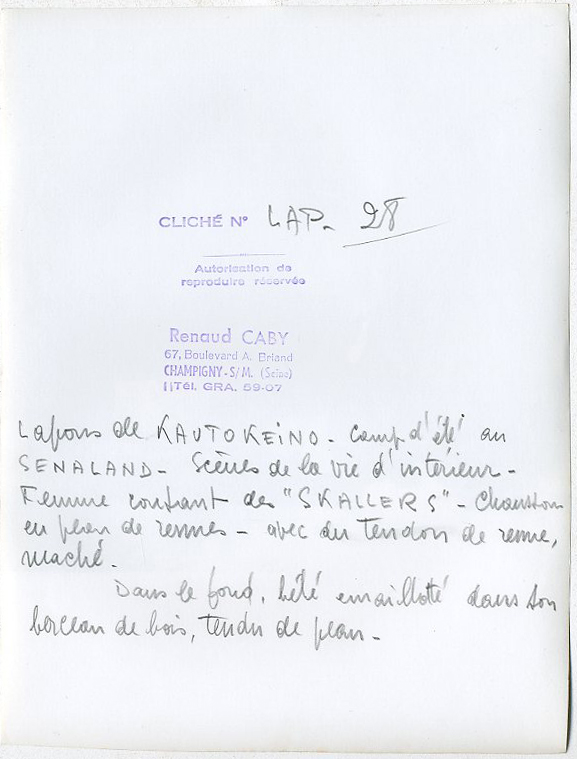 CLICHÉ N° LAP- 28
Autorisation de
reproduire réservée
Renaud CABY
67, Boulevard A. Briand
CHAMPIGNY-S/M. (Seine)
Tél. GRA. 59-07
Lapons de KAUTOKEINO - Camp d'été au
SENALAND - Scènes de la vie d'intérieur -
Femme cousant des "SKALLERS" - Chaussons
en peau de rennes - avec du tendon de renne,
maché.
Dans le fond, bébé emaillotté dans son
berceau de bois, tendu de peau -